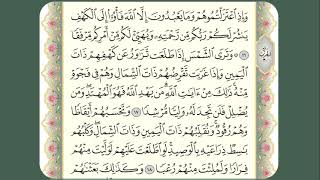 وَإِذِ اعْتَزَلْتُمُوهُمْ وَمَا يَعْبُدُونَ إِلَّا اللَّهَ فَأْوُوا إِلَى الْكَهْفِ
يَنشُرْ لَكُمْ رَبُّكُم مِّن رَّحْمَتِهِ وَيُهَيِّئْ لَكُم مِّنْ أَمْرِكُم مِّرْفَقًا
﴿١٦﴾ وَتَرَى الشَّمْسَ إِذَا طَلَعَت تَّزَاوَرُ عَن كَهْفِهِمْ ذَاتَ
الْيَمِينِ وَإِذَا غَرَبَت تَّقْرِضُهُمْ ذَاتَ الشِّمَالِ وَهُمْ فِي فَجْوَةٍ
مِّنْهُ ذَٰلِكَ مِنْ آيَاتِ اللَّهِ مَن يَهْدِ اللَّهُ فَهُوَ الْمُهْتَدِ وَمَن
يُضْلِلْ فَلَن تَجِدَ لَهُ وَلِيًّا مُّرْشِدًا ﴿١٧﴾ وَتَحْسَبُهُمْ أَيْقَاظًا
وَهُمْ رُقُودٌ وَنُقَلِّبُهُمْ ذَاتَ الْيَمِينِ وَذَاتَ الشِّمَالِ وَكَلْبُهُم
بَاسِطٌ ذِرَاعَيْهِ بِالْوَصِيدِ لَوِ اطَّلَعْتَ عَلَيْهِمْ لَوَلَّيْتَ مِنْهُمْ
فِرَارًا وَلَمُلِئْتَ مِنْهُمْ رُعْبًا ﴿١٨﴾ وَكَذَٰلِكَ بَعَثْنَاهُمْ